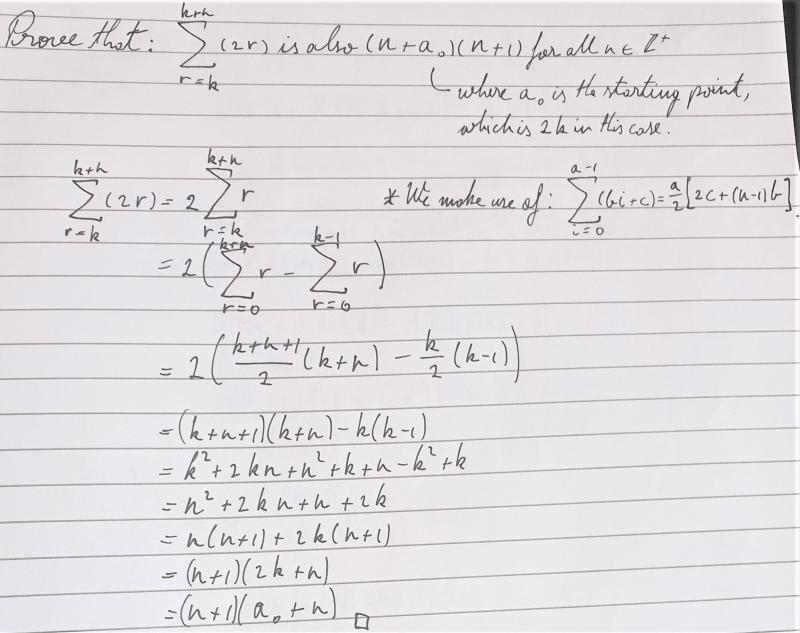 Prove that: \sum_{r=k}^{k+n} (2r) is also (n+a_0)(n+1) for all n ∈ Z^+
where a_0 is the starting point,
which is 2k in this case.
\sum_{r=k}^{k+n} (2r) = 2 \sum_{r=k}^{k+n} r
* We make use of: \sum_{i=0}^{a-1} (bi+c) = \frac{a}{2}[2c+(n-1)b].
= 2(\sum_{r=0}^{k+n} r - \sum_{r=0}^{k-1} r)
= 2(\frac{k+n+1}{2}(k+n) - \frac{k}{2}(k-1))
= (k+n+1)(k+n) - k(k-1)
= k^2 + 2kn + n^2 + k + n - k^2 + k
= n^2 + 2kn + n + 2k
= n(n+1) + 2k(n+1)
= (n+1)(2k+n)
= (n+1)(a_0+n) □